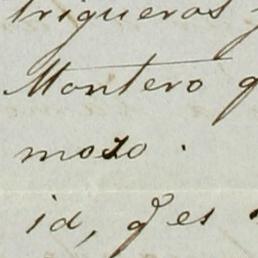 trigueros y
Montero q
mozo.
id, q es